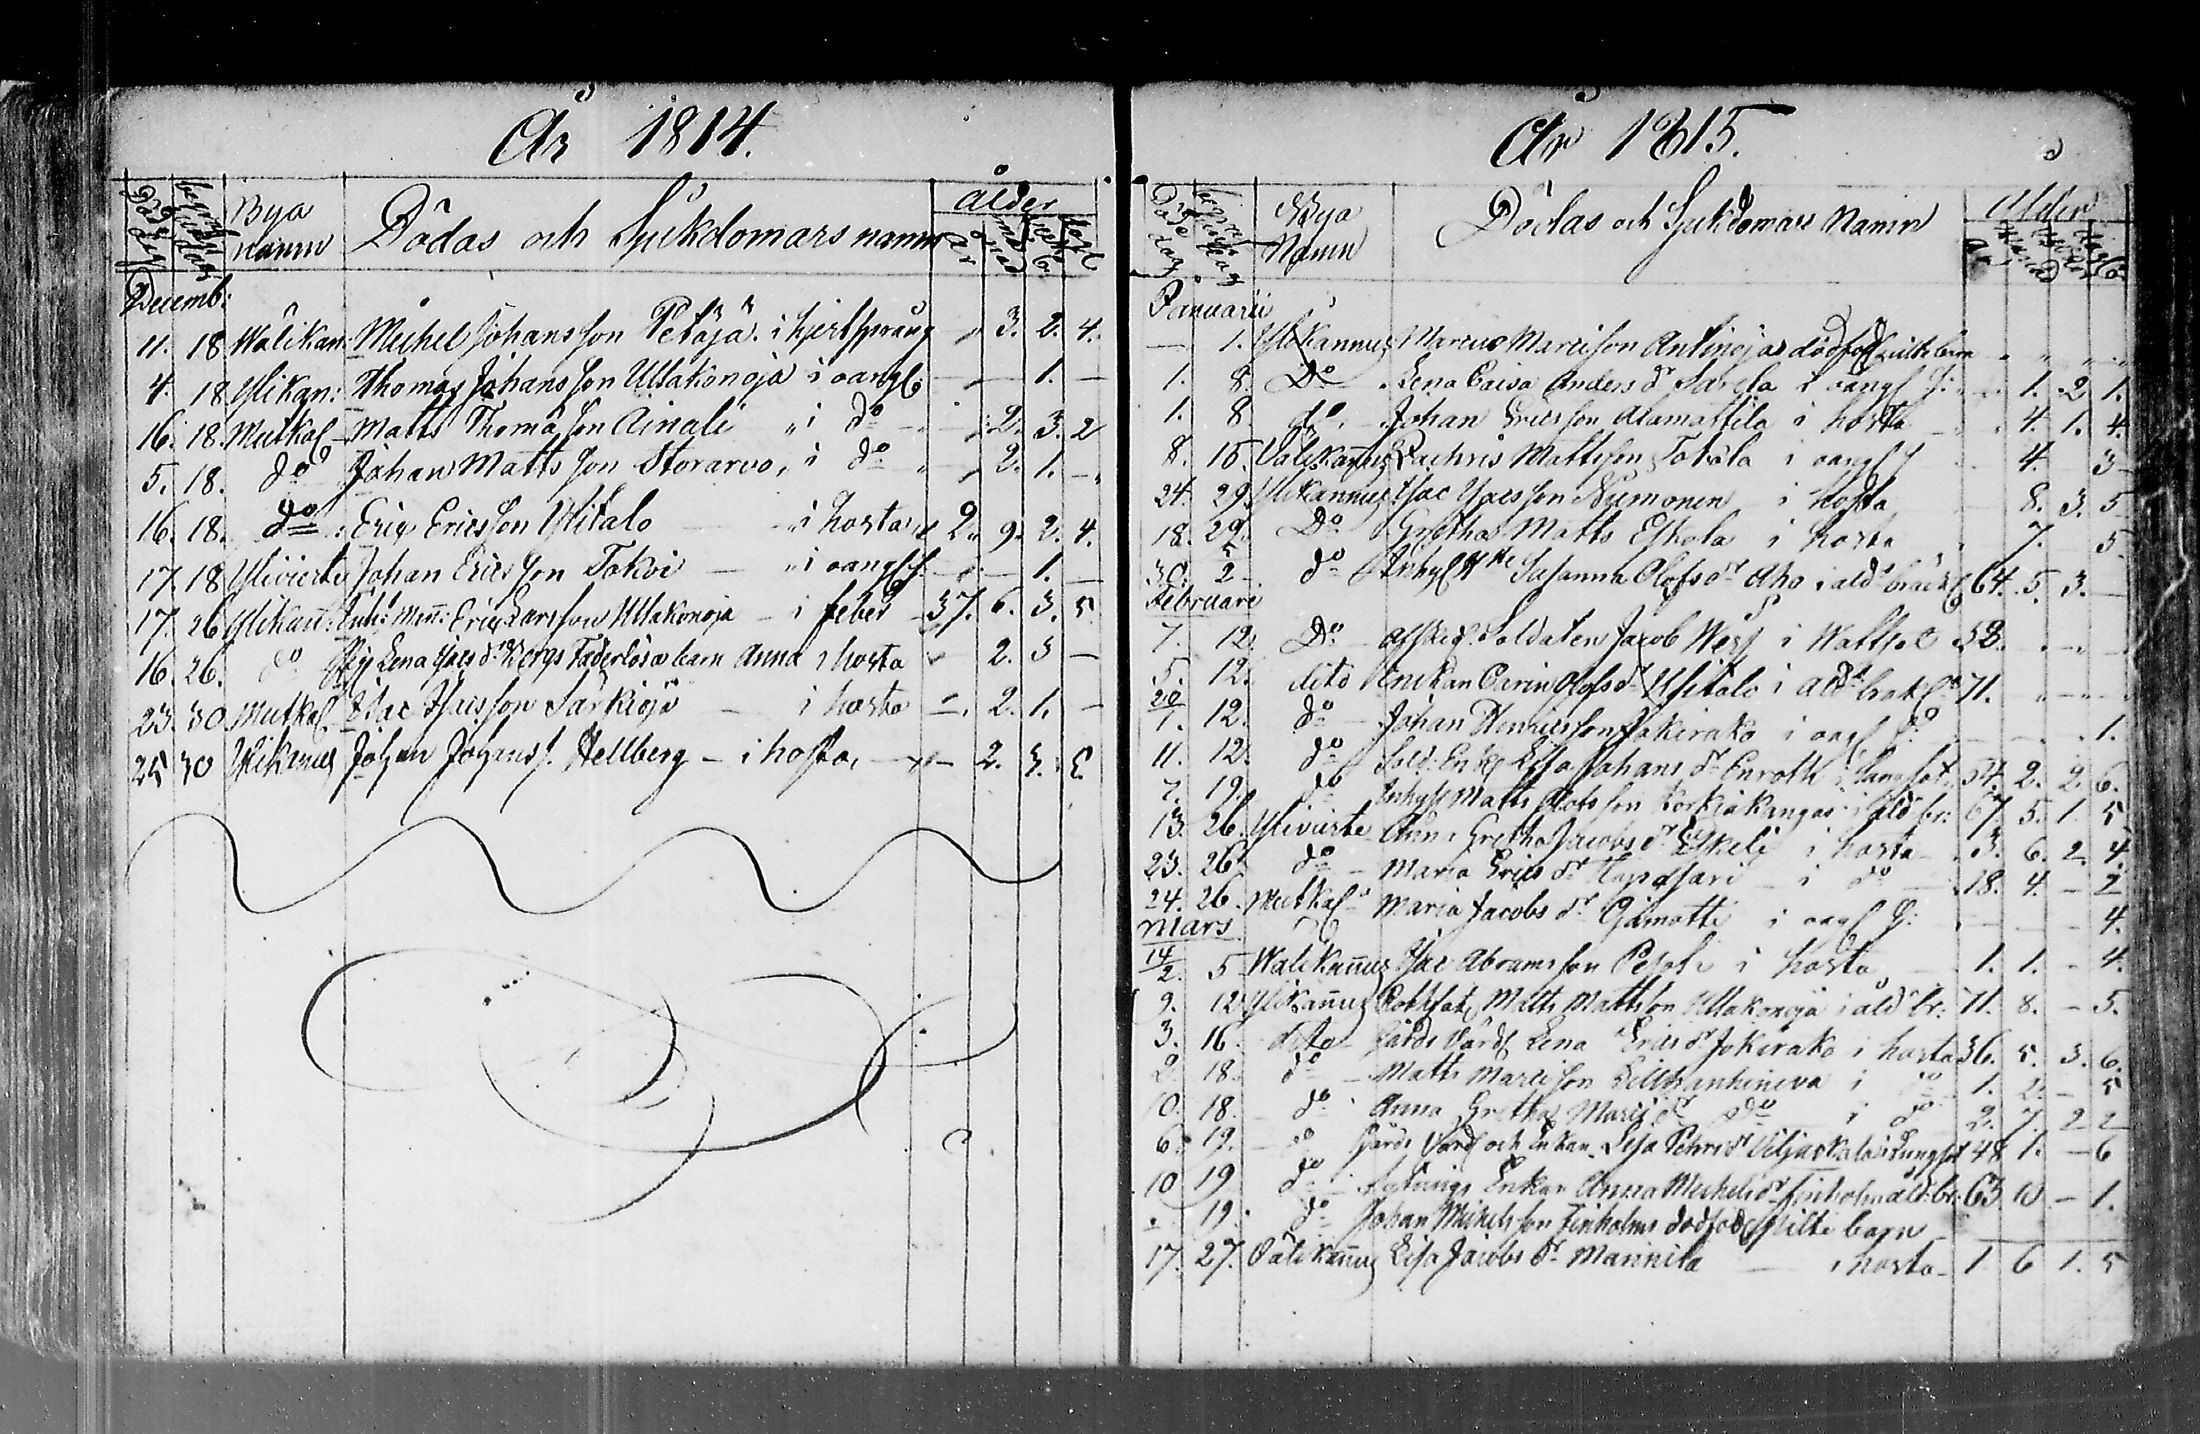 År 1814.
Död dag begrafn: dag Bya namn Dödas och Sjukdomars namn ålder
år månad vecko: dag:
Decemb:
11. 18 Wälikan: Michel Johansson Petäjä. i hjertsprång " 3. 2. 4.
4. 18 Ylikan: Thomas Johansson Ullakonoja i oangf: — — 1. —
16. 18. Mutkal: Matts Thomasson Ainali " i do " 2. 3. 2
5. 18. do Johan Mattsson Storarvo, i do " 2. 1. —
16. 18. do Eric Ericsson Ylitalo — i hosta 2. 9. 2. 4.
17. 18 Ylivierte Johan Ericsson Takoi — " i oangf — — 1. —
17. 26 Ylikan: Inh: Man: Eric Larsson Ullakonoja — i feber 37. 6. 3. 5
16. 26. do Pig Lena Isacs dr Bergs Faderlösa barn Anna i hosta " 2. 3 —
23. 30 Mutkal Isac Isacsson Särkioja — i hosta — 2. 1. —
25 30 Ylikanus Johan Johanss. Hellberg — i hosta, — 2. 3. 5.
År 1815.
Döde dag begrafn: dag Bya Namn Dödas och Sjukdomars Namn Ålder
Januarii
— 1. Ylikannus Marcus Marcisson Antinoja dödfödt barn " " " "
1. 8. Do Lena Caisa Anders dr Särela i oangf " 1. 2 1.
1. 8 do. Johan Ericsson Alamattila i hosta " 4. 1. 4.
8. 15. Välikannus Zachris Mattsson Tokola i oangf 4. 3
24. 29. Ylikannus Isac Isacsson Niemonen i hosta 8. 3. 5
18. 29. Do Gretha Matts Eskola i hosta 7. 5.
30. 5/2 do Susanna Olofs dr Aho i åld: bräckl: 64. 5. 3. —
Februarii
7. 12. Do afsked: Soldaten Jacob Wärf i Wattsot 58. " " —
5. 12. dito Enkan Carin Olofs dr Ylitalo i åld: brekl: 71. " " "
20/1. 12. do Johan Henricsson Jokirako i oangf — — — 1.
11. 12. do Sold: Enk: Lisa Johans dr Enroth i lungsot 54. 2. 2. 6.
7. 19. do Inhys: Matts Olofsson Korkiakangas i åld: br: 67. 5. 1. 5
13. 26. Ylivierte Anna Gretha Jacobs dr Eskeli i hosta 3. 6. 2. 4.
23. 26. do — Maria Erics dr — i do — 18. 4. — 2
24. 26. Mutkal: Maria Jacobs dr i oangf — — — 4.
Mars
14/2. 5 Wälikannus Isac Abramsson Pesola i hosta 1. 1. — 4.
9. 12 Ylikannus Matts Mattsson Ullakonoja i åld: br: 71. 8. — 5.
3. 16. dito Lena Erics dr Jokirako i hosta 36. 5. 3. 6.
2 18. do — Matts Marcisson i do 1. 2. — 5
10. 18. do Anna Gretha Marci dr do i do 2. 7. 2 2
6. 19. do och Enkan Lisa Pehrs dr Viljaskala i Lungsot 48 1. — 6
10 19 do Enkan Anna Michels dr Finholm åld: br: 63 10 — 1.
— 19. do Johan Michelsson Finholms dödfödt barn
17. 27. Välikannus Lisa Jacobs dr Mannila — i hosta — 1 6 1. 5